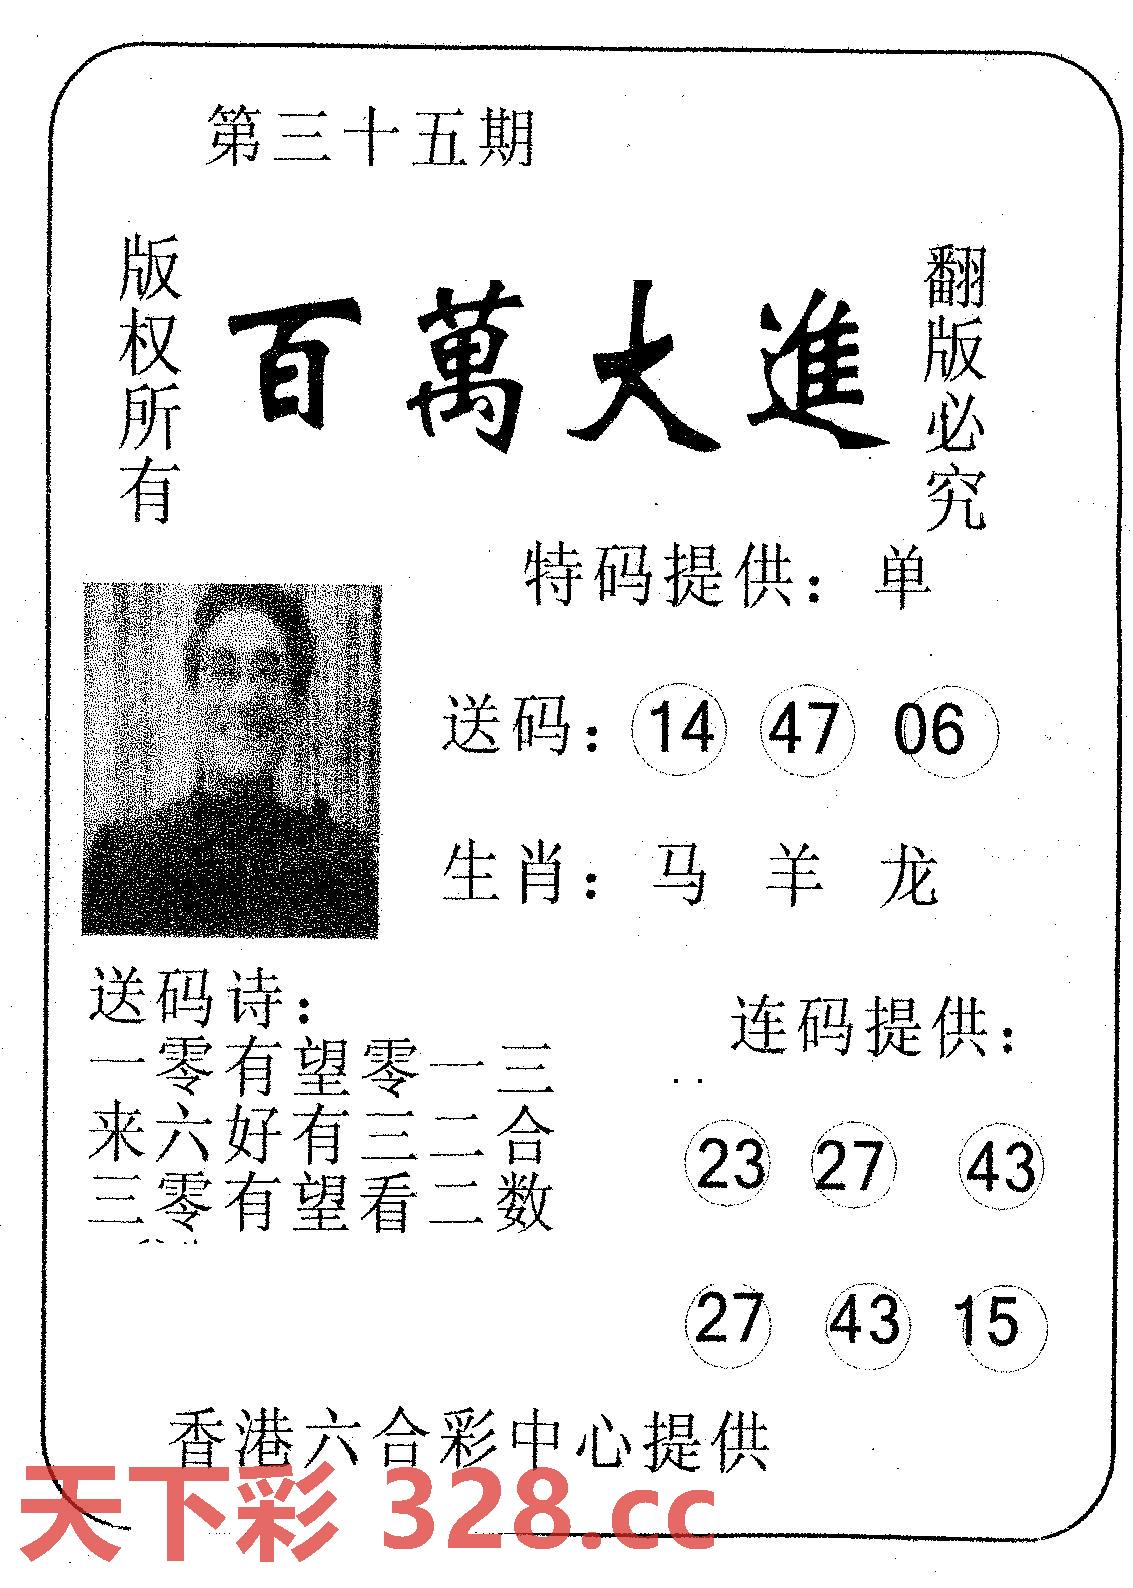 第三十五期
版权所有
百萬大進
翻版必究
特码提供：单
送码：14 47 06
生肖：马 羊 龙
送码诗：
一零有望零一三
来六好有三二合
三零有望看二数
连码提供：
23 27 43
27 43 15
香港六合彩中心提供
天下彩 328.cc